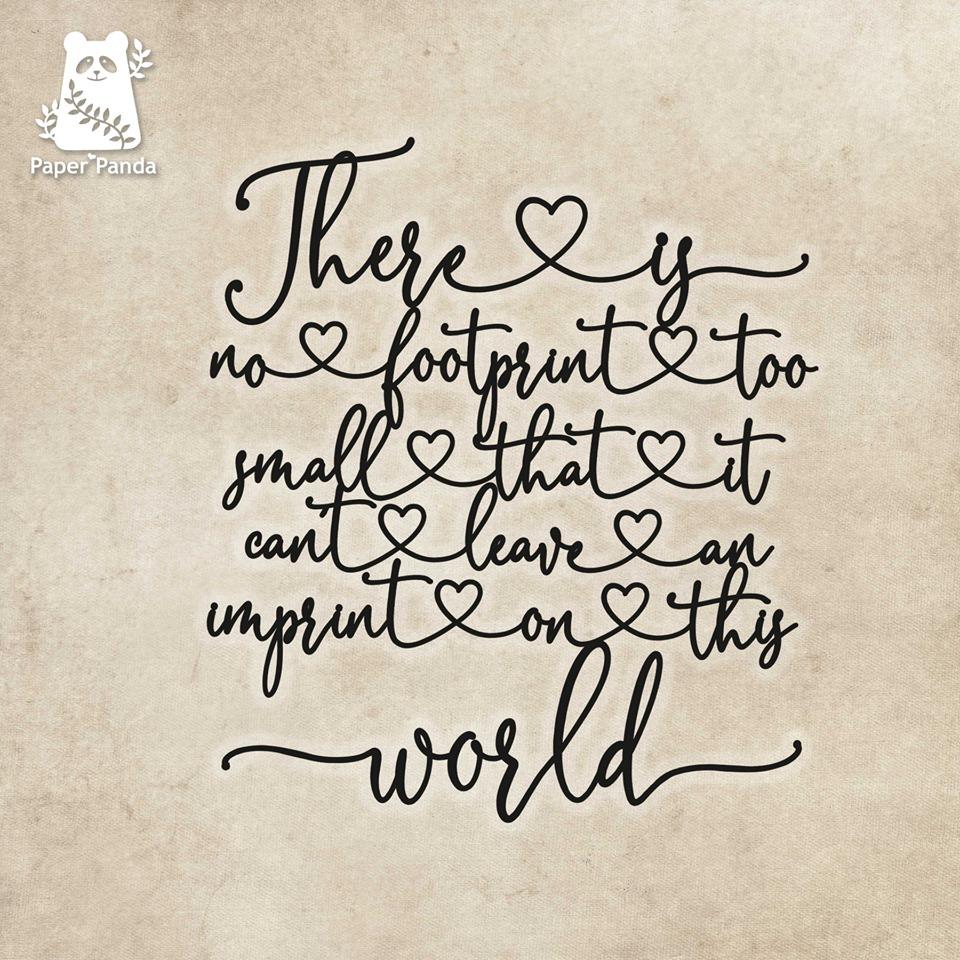 Paper Panda
There is
no footprint too
small that it
can't leave an
imprint on this
world